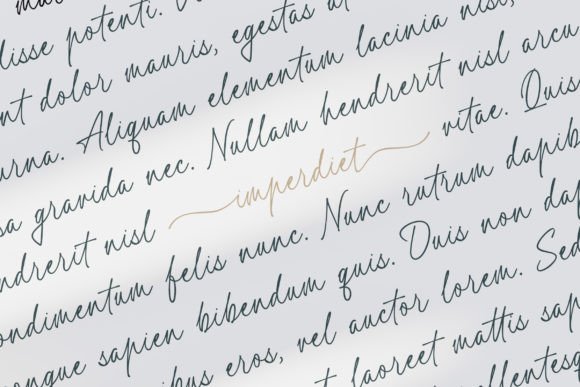 lisse potenti.
nt dolor mauris, egestas
urna. Aliquam elementum lacinia nisl,
sa gravida nec. Nullam hendrerit nisl arcu
ndrerit nisl imperdiet vitae. Quis
ondimentum felis nunc. Nunc rutrum dapib
ongue sapien bibendum quis. Duis non dap
ibus eros, vel auctor lorem. Sed
t laoreet mattis sap
ellentesq